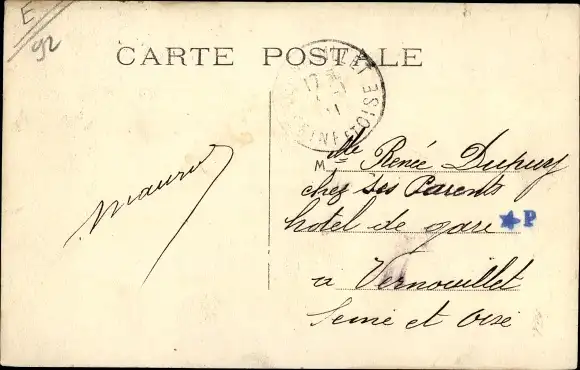 E
92
CARTE POSTALE
SEINE ET OISE
17
M
Mlle Renée Dupuy
chez ses Parents
hotel de gare ★P
a Vernouillet
Seine et Oise